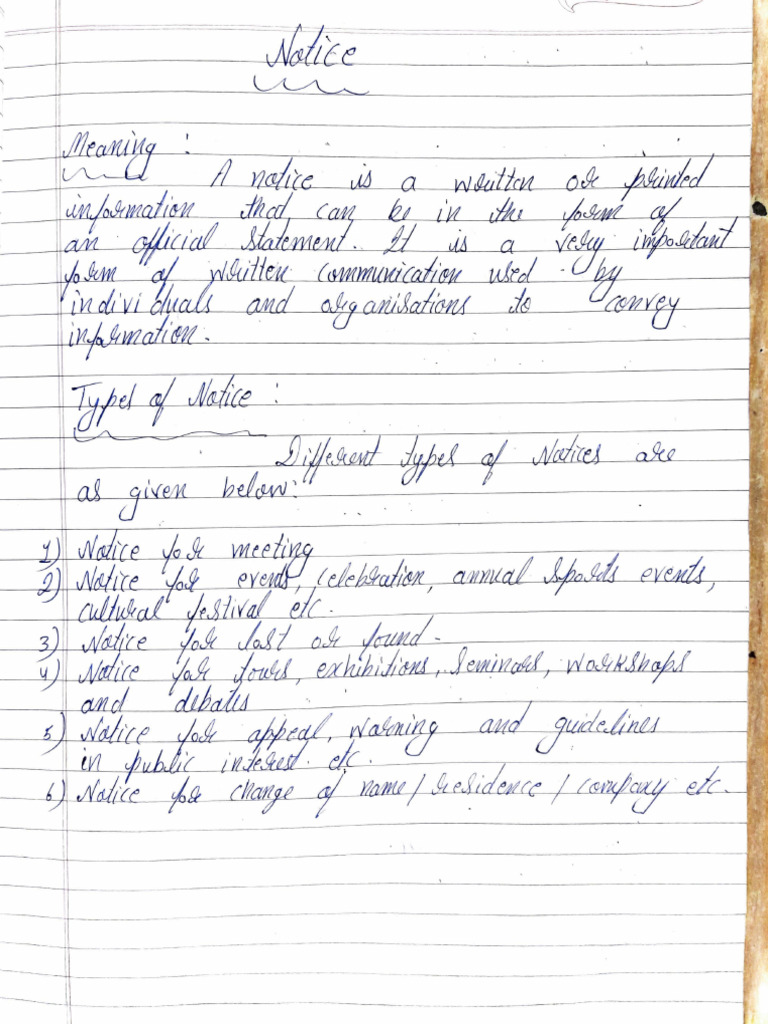 Notice
Meaning :
A notice is a written or printed
information that can be in the form of
an official statement. It is a very important
form of written communication used by
individuals and organisations to convey
information.
Types of Notice :
Different types of Notices are
as given below:
1) Notice for meeting
2) Notice for events, celebration, annual sports events,
cultural festival etc.
3) Notice for lost or found.
4) Notice for tours, exhibitions, seminars, workshops
and debates
5) Notice for appeal, warning and guidelines
in public interest. etc.
6) Notice for change of name / residence / company etc.